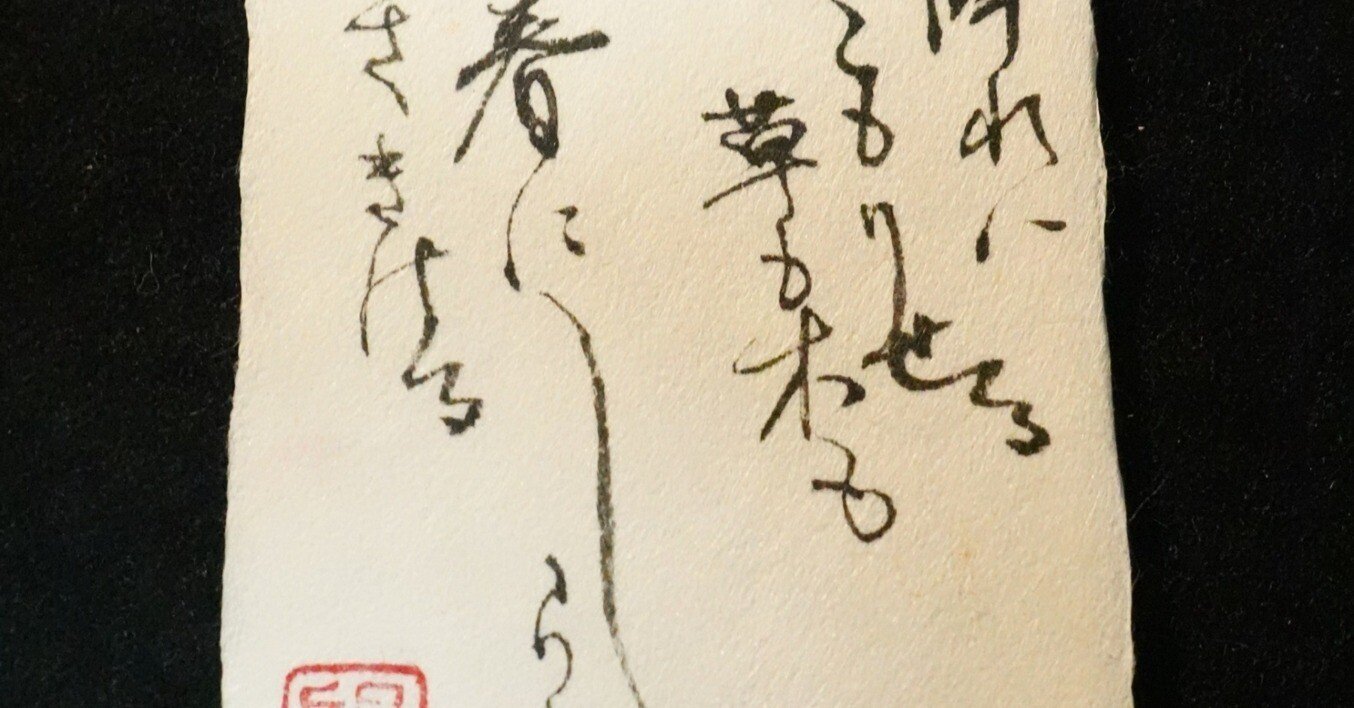 れは
こもりせる
草も木も
春にしら
さきける